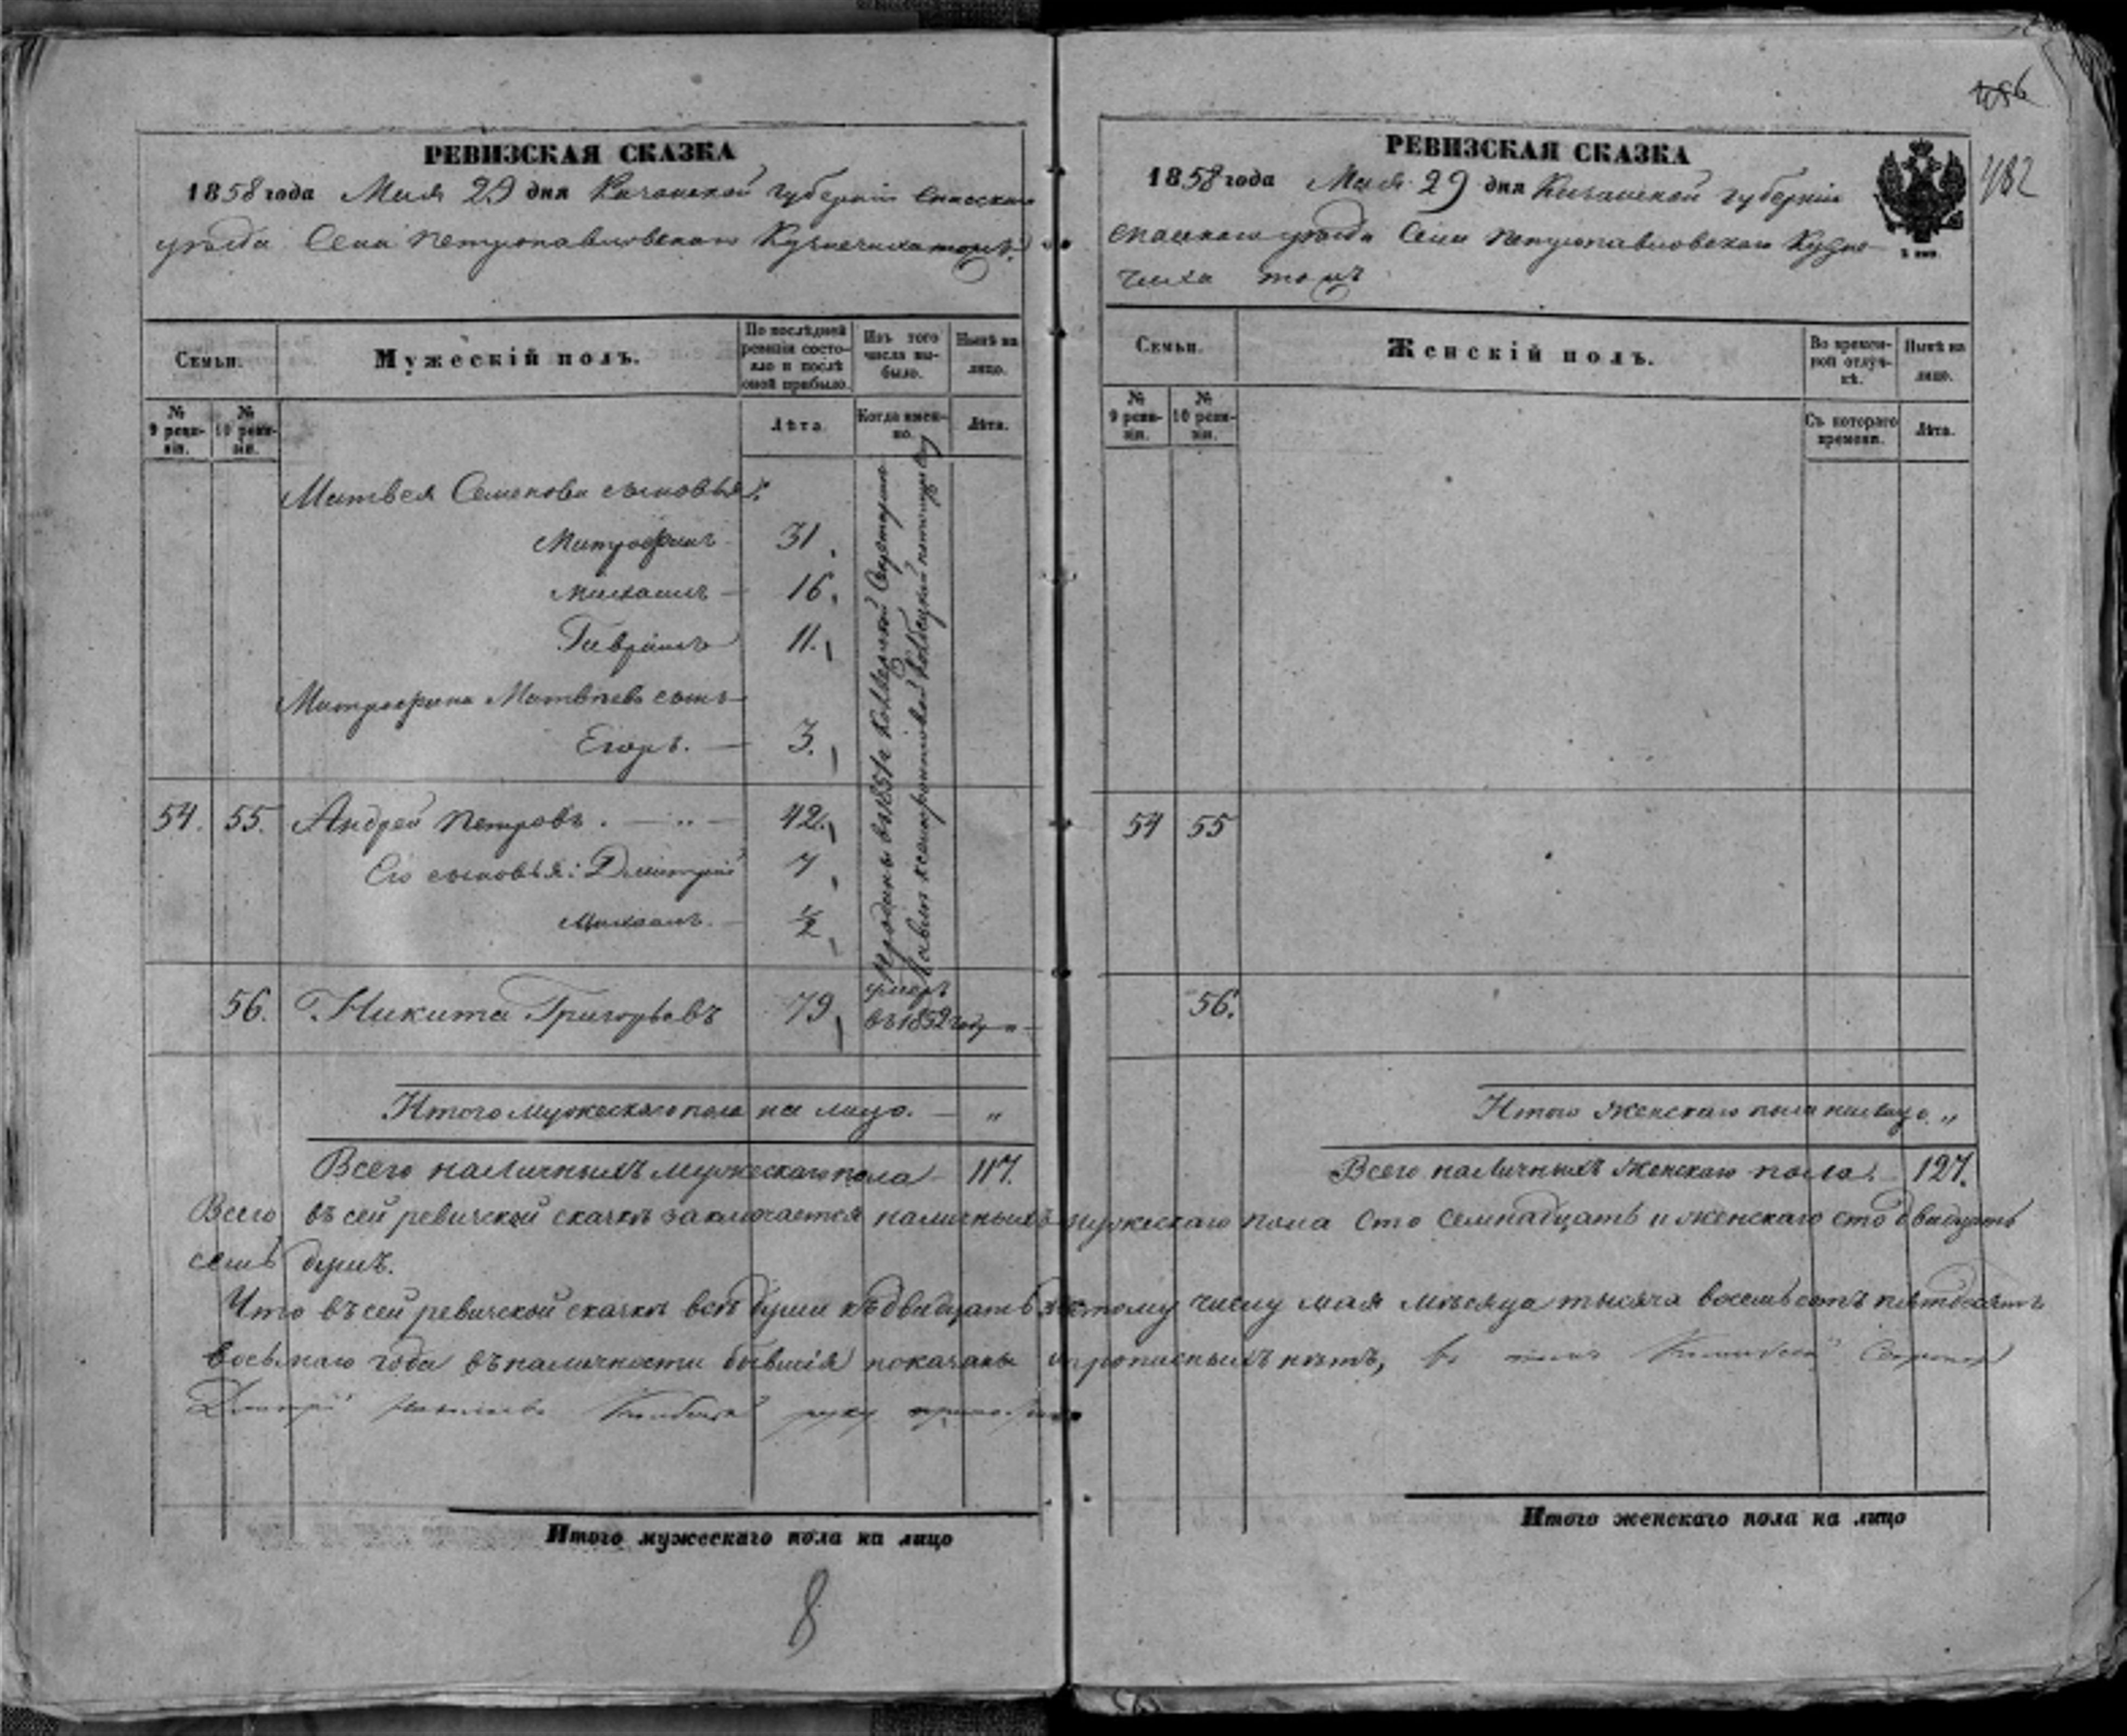 РЕВИЗСКАЯ СКАЗКА
1858 года Мая 29 дня Казанской губернии Спасскаго
уѣзда Села Петропавловскаго Кузнечиха тожъ.
Семьи.
Мужескій полъ.
По послѣдней ревизіи состояло и послѣ оной прибыло.
Изъ того числа выбыло.
Нынѣ на лицо.
№ 9 ревизіи.
№ 10 ревизіи.
Лѣта.
Когда именно.
Лѣта.
Матвея Семенова сыновья:
Митрофанъ 31
Михаилъ 16
Гаврилъ 11
Митрофана Матвѣевъ сынъ
Егоръ. 3.
54. 55. Андрей Петровъ. 42
Его сыновья: Дмитрій 7
Михаилъ. ½
56. Никита Григорьевъ 79 умеръ
въ 1852 году
Проданы въ 1851 г
Итого мужескаго пола на лицо. — „
Всего наличныхъ мужескаго пола 117.
РЕВИЗСКАЯ СКАЗКА
1858 года Мая 29 дня Казанской губерніи
спасскаго уѣзда Села Петропавловскаго Кузне
чиха тожъ
456
482
Семьи.
Женскій полъ.
Во временной отлучкѣ.
Нынѣ на лицо.
№ 9 ревизіи.
№ 10 ревизіи.
Съ котораго времени.
Лѣта.
54 55
56.
Итого женскаго пола налицо. „
Всего наличныхъ женскаго пола. 127.
Всего въ сей ревизской сказкѣ заключается наличныхъ мужескаго пола сто семнадцать и женскаго сто двадцать
семь душъ.
Что въ сей ревизской сказкѣ всѣ души къ двадцать тому числу мая мѣсяца тысяча восемьсотъ пятдесятъ
восьмаго года въ наличности бывшія показаны и прописныхъ нѣтъ, въ томъ
Дмитрій руку приложилъ
Итого мужескаго пола на лицо
Итого женскаго пола на лицо
8